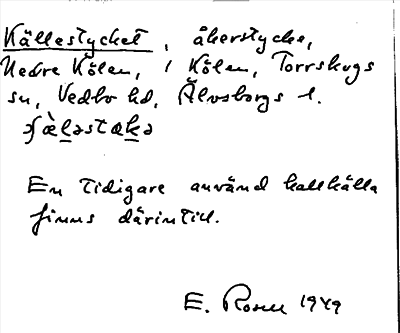 Källestycket, åkerstycke,
Nedre Kölen, i Kölen, Torrskogs
sn, Vedbo hd, Älvsborgs l.
En tidigare använd kallkälla
finns därintill.
E. Rosen 1949